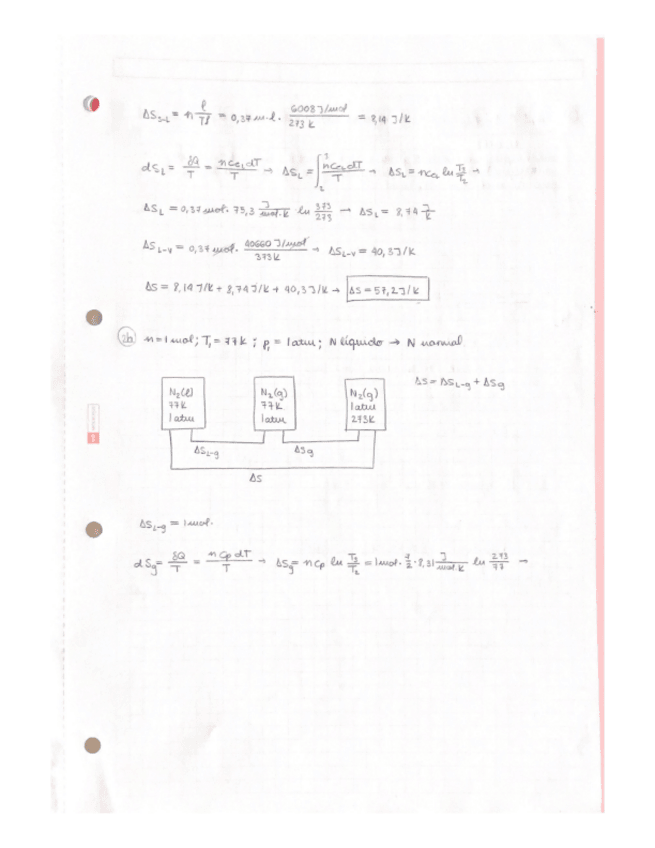 ΔS_{S-L} = n ℓ/T_f = 0,37 mol · 6008 J/mol / 273 K = 8,14 J/K
dS_L = δQ/T = n c_{e_1} dT/T → ΔS_L = ∫_2^3 n c_{e_2} dT/T → ΔS_L = n c_{e_2} ln T_3/T_2 →
ΔS_L = 0,37 mol · 75,3 J/mol·K ln 373/273 → ΔS_L = 8,74 J/K
ΔS_{L-V} = 0,37 mol · 40660 J/mol / 373 K → ΔS_{L-V} = 40,3 J/K
ΔS = 8,14 J/K + 8,74 J/K + 40,3 J/K → ΔS = 57,2 J/K
26 n = 1 mol; T_1 = 77 K ; p_1 = 1 atm ; N líquido → N normal
N_2(ℓ) 77K 1 atm
N_2(g) 77K 1 atm
N_2(g) 1 atm 273K
ΔS = ΔS_{L-g} + ΔS_g
ΔS_{L-g}
ΔS_g
ΔS
ΔS_{L-g} = 1 mol ·
dS_g = δQ/T = n c_p dT/T → ΔS_g = n c_p ln T_3/T_2 = 1 mol · 7/2 · 8,31 J/mol·K ln 273/77 →